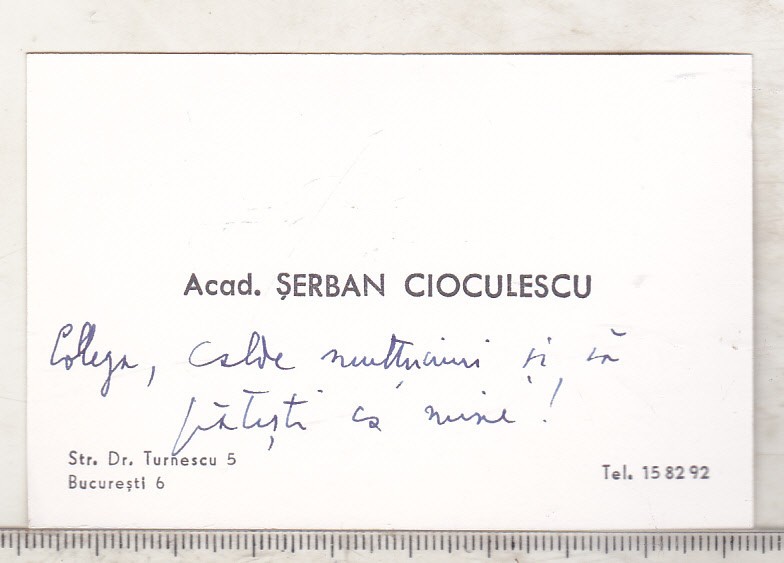 Acad. ȘERBAN CIOCULESCU
Collega, calde mulțumiri și să
pățești ca mine!
Str. Dr. Turnescu 5
București 6
Tel. 15 82 92